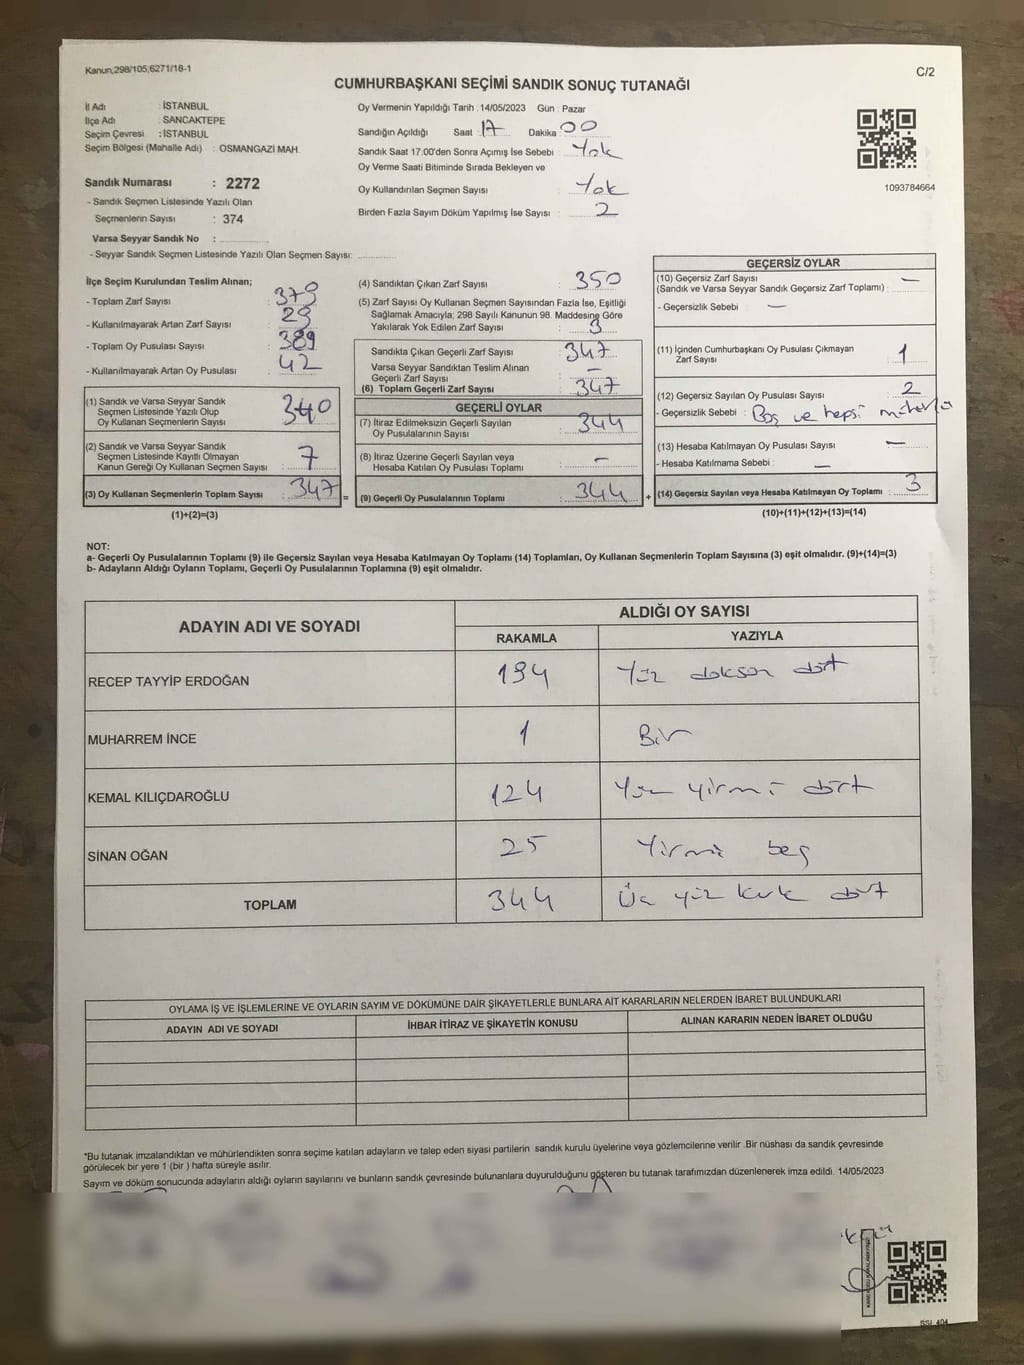 Kanun;298/105;6271/18-1
C/2
CUMHURBAŞKANI SEÇİMİ SANDIK SONUÇ TUTANAĞI
İl Adı : İSTANBUL
İlçe Adı : SANCAKTEPE
Seçim Çevresi : İSTANBUL
Seçim Bölgesi (Mahalle Adı) : OSMANGAZİ MAH.
Sandık Numarası : 2272
- Sandık Seçmen Listesinde Yazılı Olan
Seçmenlerin Sayısı : 374
Varsa Seyyar Sandık No :
- Seyyar Sandık Seçmen Listesinde Yazılı Olan Seçmen Sayısı:
Oy Vermenin Yapıldığı Tarih : 14/05/2023 Gün : Pazar
Sandığın Açıldığı Saat : 17 Dakika : 00
Sandık Saat 17.00'den Sonra Açımış İse Sebebi : Yok
Oy Verme Saati Bitiminde Sırada Bekleyen ve
Oy Kullandırılan Seçmen Sayısı : Yok
Birden Fazla Sayım Döküm Yapılmış İse Sayısı : 2
1093784664
İlçe Seçim Kurulundan Teslim Alınan;
- Toplam Zarf Sayısı : 379
- Kullanılmayarak Artan Zarf Sayısı : 29
- Toplam Oy Pusulası Sayısı : 389
- Kullanılmayarak Artan Oy Pusulası : 42
(1) Sandık ve Varsa Seyyar Sandık
Seçmen Listesinde Yazılı Olup
Oy Kullanan Seçmenlerin Sayısı : 340
(2) Sandık ve Varsa Seyyar Sandık
Seçmen Listesinde Kayıtlı Olmayan
Kanun Gereği Oy Kullanan Seçmen Sayısı : 7
(3) Oy Kullanan Seçmenlerin Toplam Sayısı : 347
(1)+(2)=(3)
(4) Sandıktan Çıkan Zarf Sayısı : 350
(5) Zarf Sayısı Oy Kullanan Seçmen Sayısından Fazla İse, Eşitliği
Sağlamak Amacıyla; 298 Sayılı Kanunun 98. Maddesine Göre
Yakılarak Yok Edilen Zarf Sayısı : 3
Sandıkta Çıkan Geçerli Zarf Sayısı : 347
Varsa Seyyar Sandıktan Teslim Alınan
Geçerli Zarf Sayısı : —
(6) Toplam Geçerli Zarf Sayısı : 347
GEÇERLİ OYLAR
(7) İtiraz Edilmeksizin Geçerli Sayılan
Oy Pusulalarının Sayısı : 344
(8) İtiraz Üzerine Geçerli Sayılan veya
Hesaba Katılan Oy Pusulası Toplamı : —
= (9) Geçerli Oy Pusulalarının Toplamı : 344 +
GEÇERSİZ OYLAR
(10) Geçersiz Zarf Sayısı
(Sandık ve Varsa Seyyar Sandık Geçersiz Zarf Toplamı) : —
- Geçersizlik Sebebi : —
(11) İçinden Cumhurbaşkanı Oy Pusulası Çıkmayan
Zarf Sayısı : 1
(12) Geçersiz Sayılan Oy Pusulası Sayısı : 2
- Geçersizlik Sebebi : Boş ve hepsi
(13) Hesaba Katılmayan Oy Pusulası Sayısı : —
- Hesaba Katılmama Sebebi : —
(14) Geçersiz Sayılan veya Hesaba Katılmayan Oy Toplamı : 3
(10)+(11)+(12)+(13)=(14)
NOT:
a- Geçerli Oy Pusulalarının Toplamı (9) ile Geçersiz Sayılan veya Hesaba Katılmayan Oy Toplamı (14) Toplamları, Oy Kullanan Seçmenlerin Toplam Sayısına (3) eşit olmalıdır. (9)+(14)=(3)
b- Adayların Aldığı Oyların Toplamı, Geçerli Oy Pusulalarının Toplamına (9) eşit olmalıdır.
ADAYIN ADI VE SOYADI
ALDIĞI OY SAYISI
RAKAMLA YAZIYLA
RECEP TAYYİP ERDOĞAN 194 Yüz doksan dört
MUHARREM İNCE 1 Bir
KEMAL KILIÇDAROĞLU 124 Yüz yirmi dört
SİNAN OĞAN 25 Yirmi beş
TOPLAM 344 Üç yüz kırk dört
OYLAMA İŞ VE İŞLEMLERİNE VE OYLARIN SAYIM VE DÖKÜMÜNE DAİR ŞİKAYETLERLE BUNLARA AİT KARARLARIN NELERDEN İBARET BULUNDUKLARI
ADAYIN ADI VE SOYADI İHBAR İTİRAZ VE ŞİKAYETİN KONUSU ALINAN KARARIN NEDEN İBARET OLDUĞU
*Bu tutanak imzalandıktan ve mühürlendikten sonra seçime katılan adayların ve talep eden siyasi partilerin sandık kurulu üyelerine veya gözlemcilerine verilir .Bir nüshası da sandık çevresinde
görülecek bir yere 1 (bir ) hafta süreyle asılır.
Sayım ve döküm sonucunda adayların aldığı oyların sayılarını ve bunların sandık çevresinde bulunanlara duyurulduğunu gösteren bu tutanak tarafımızdan düzenlenerek imza edildi. 14/05/2023
SSI_404